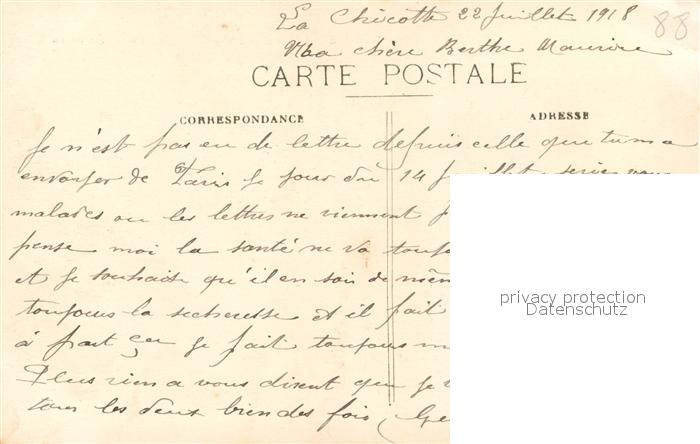 La Chicotte 22 Juillet 1918
88
Ma chère Berthe Maurice
CARTE POSTALE
CORRESPONDANCE
ADRESSE
Je n'est pas eu de lettre depuis celle que tu m a
envoyer de Paris le jour du 14 Juillet
malades ou les lettres ne viennent
pense moi la santé ne va
et Je souhaite qu'il en soit de mêm
toujours la secheresse et il fait
à part ça Je fait toujours m
Plus rien a vous disent que Je
tous les deux bien des fois
privacy protection
Datenschutz